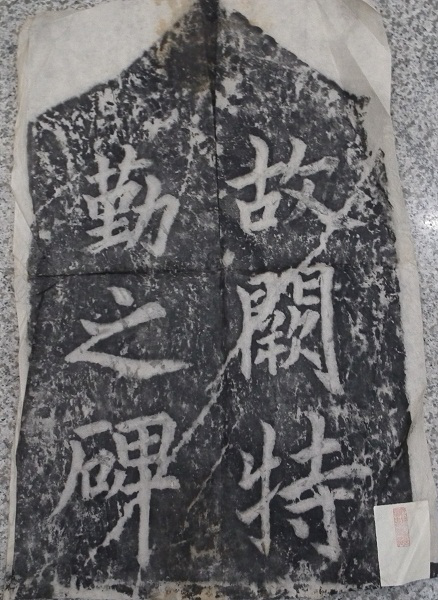 故闕特
勤之碑